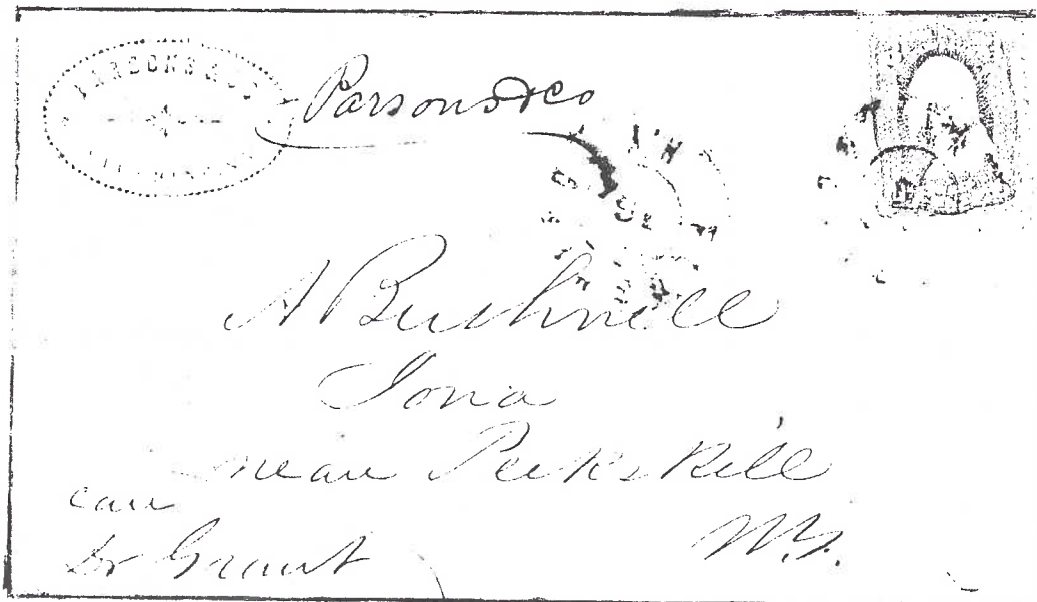 PARSONS & CO
FLUSHING
Parsons & Co
A Bushnell
Iona
near Peekskill
care
Dr Grant
N.Y.